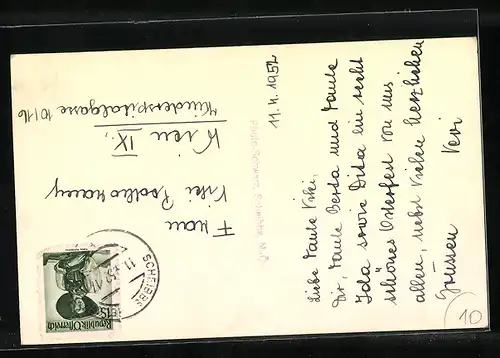 11. 4. 1952
Liebe Tante Viki,
Dir, Tante Berta und Tante
Ida sowie Dita ein recht
schönes Osterfest von uns
allen, nebst vielen herzlichen
Grüssen
Veri
Frau
Viki
Wien IX.,
Kinderspitalgasse 10/16
SCHEIBBS
11.4.52
Republik Österreich
10